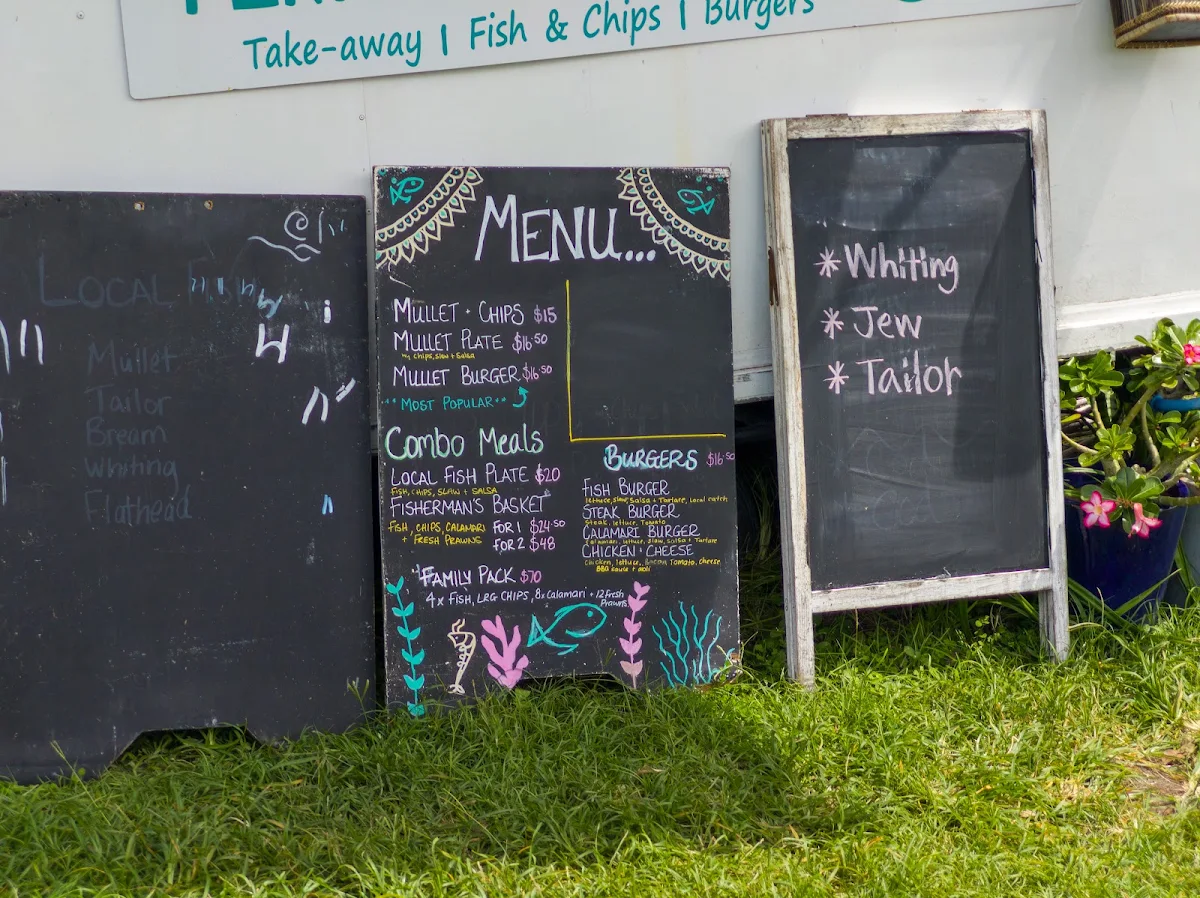 Take-away | Fish & Chips | Burgers
LOCAL
Mullet
Tailor
Bream
Whiting
Flathead
MENU...
MULLET + CHIPS $15
MULLET PLATE $16.50
Chips, slaw + salsa
MULLET BURGER $16.50
MOST POPULAR
Combo Meals
LOCAL FISH PLATE $20
FISH, CHIPS, SLAW + SALSA
FISHERMAN'S BASKET
FISH, CHIPS, CALAMARI
+ FRESH PRAWNS
FOR 1 $24.50
FOR 2 $48
FAMILY PACK $70
4x FISH, LRG CHIPS, 8x Calamari + 12 Fresh
Prawns
BURGERS $16.50
FISH BURGER
lettuce, slaw, salsa + Tartare, Local catch
STEAK BURGER
Steak, lettuce, Tomato
CALAMARI BURGER
Calamari, lettuce, slaw, salsa + Tartare
CHICKEN + CHEESE
Chicken, lettuce, Bacon, Tomato, cheese
BBQ sauce + aoli
* Whiting
* Jew
* Tailor